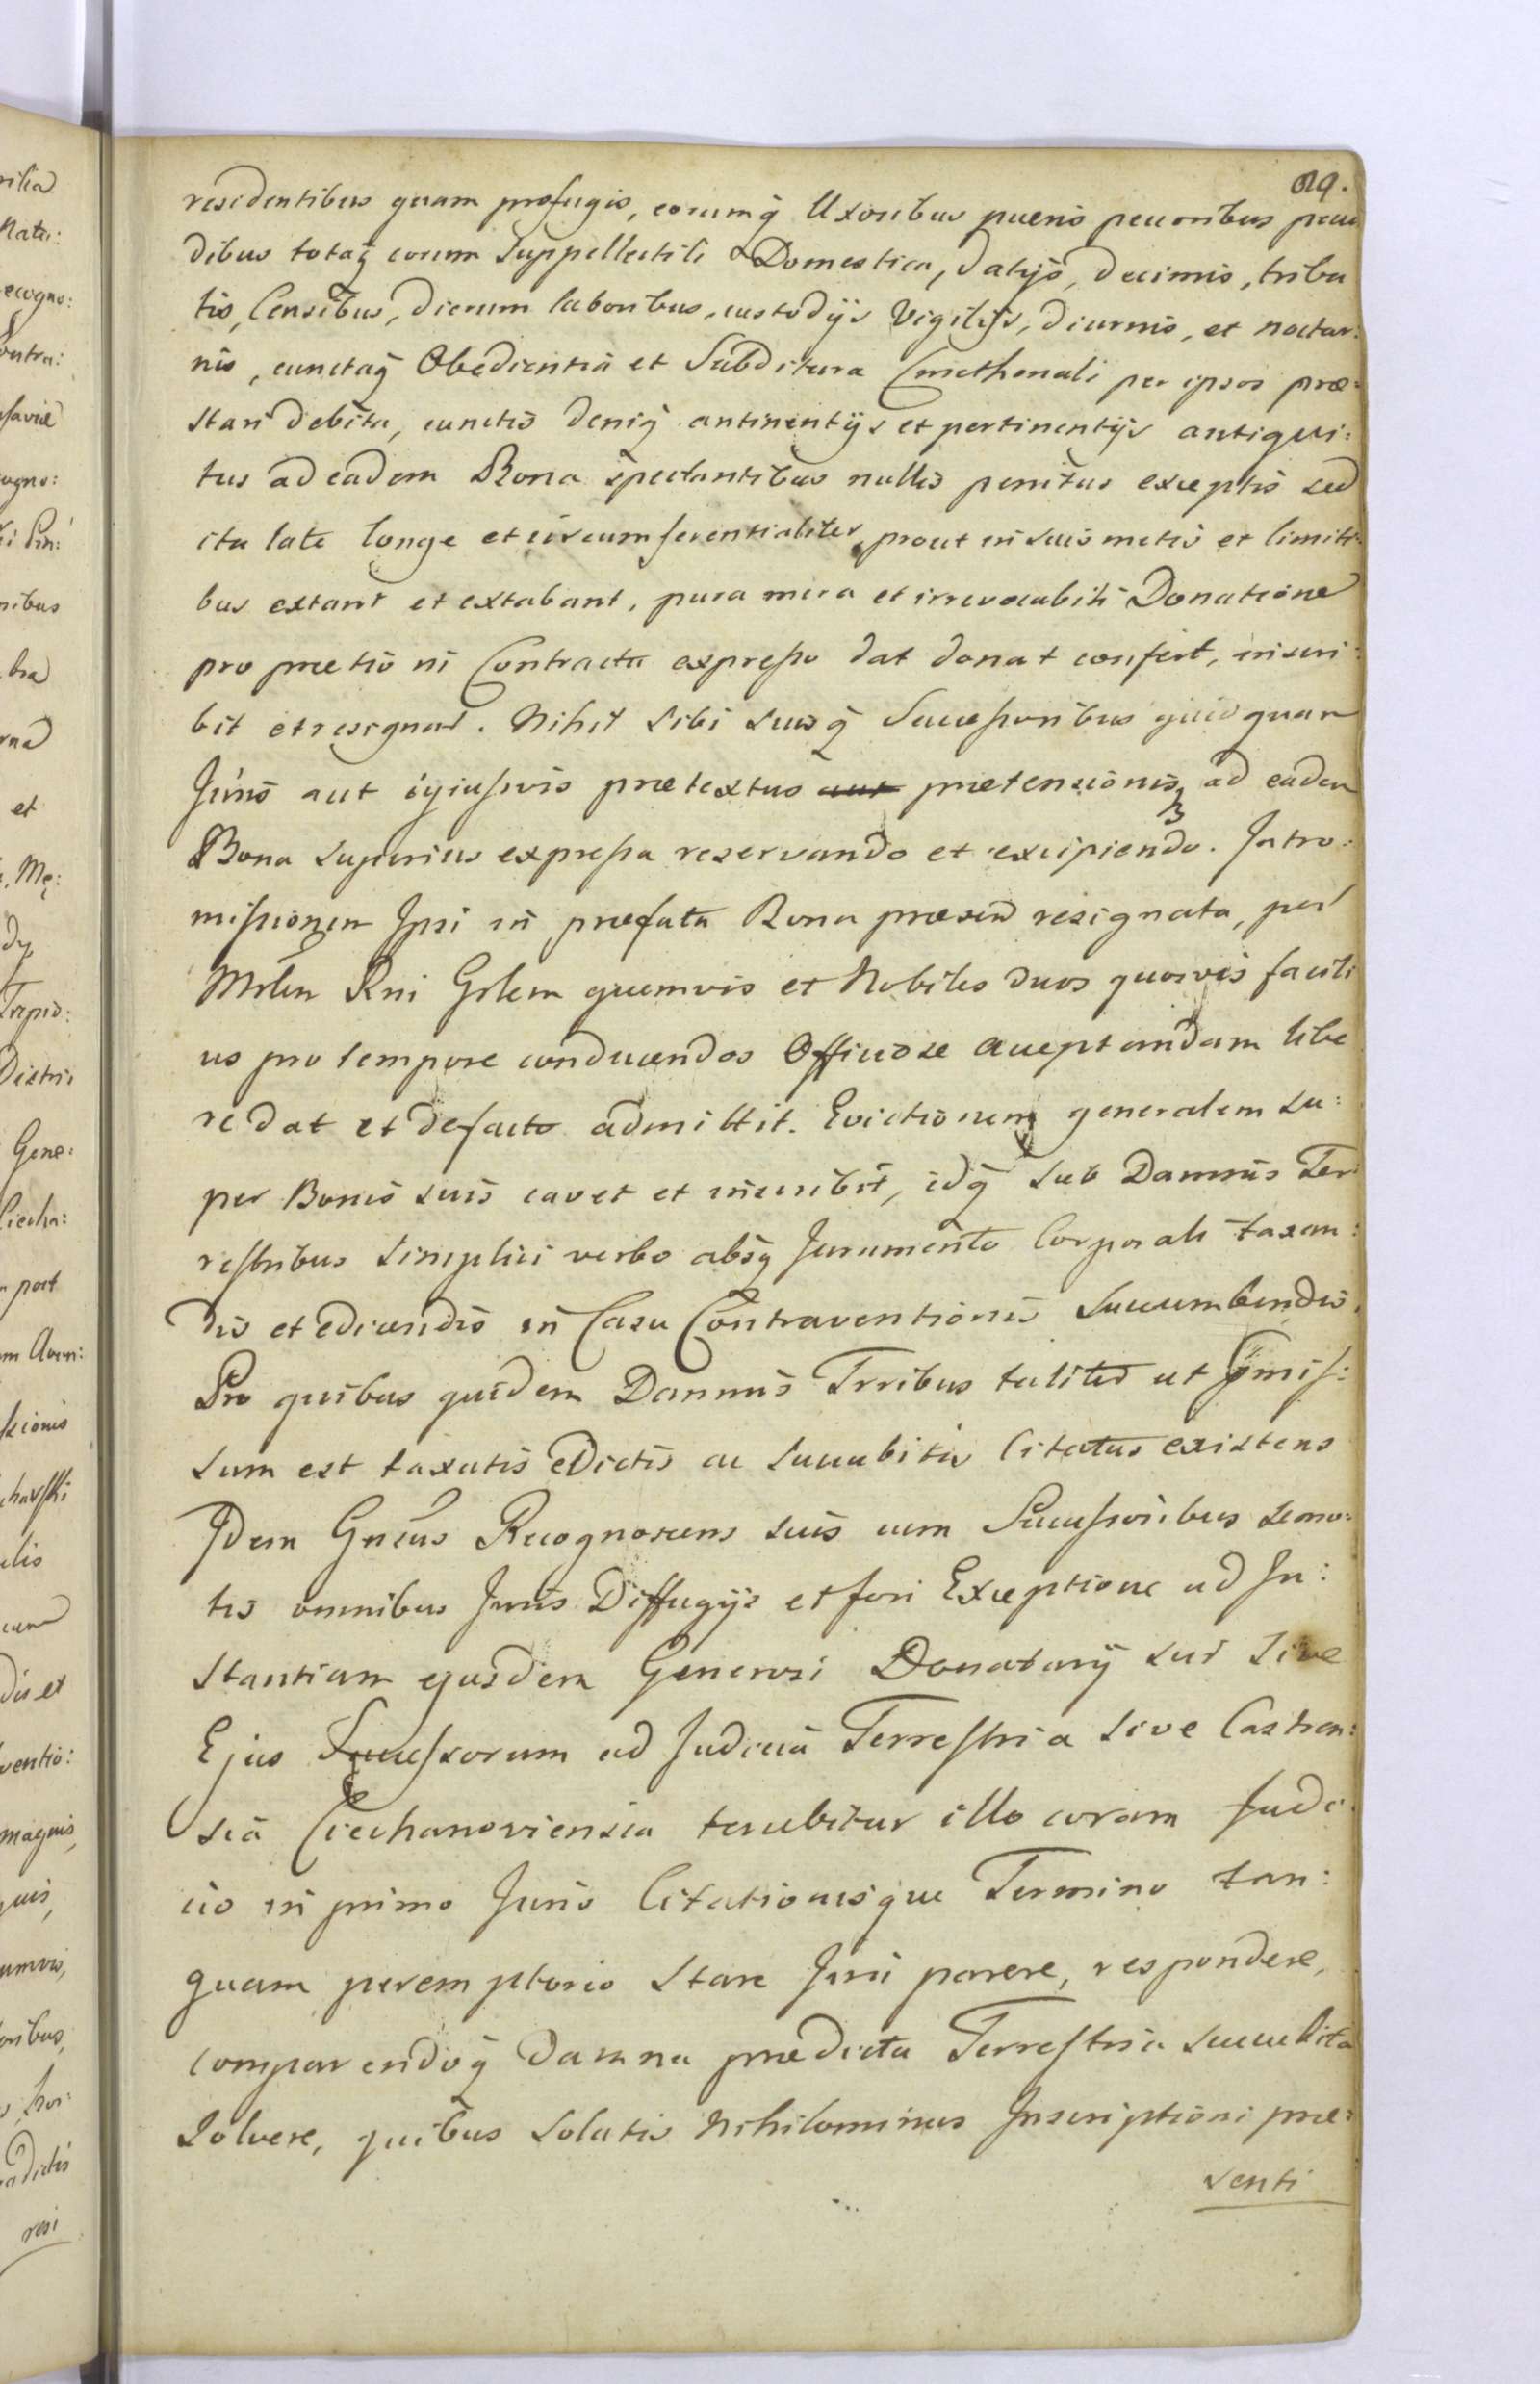 29.
residentibus quam profugis, eorumq̃ Uxoribus pueris pecoribus pecu
dibus totaq̃ eorum Suppellectili Domestica, datijs, decimis, tribu
tis, Censibus, dierum laboribus, custodijs Vigilijs, diurnis, et noctur:
nis, cunctaq̃ Obedientia et Subditura Cmethonali per ipsos præ:
stari debita, cunctis deniq̃ attinentijs et pertinentijs antiqui:
tus ad eadem Bona spectantibus nullis penitus exceptis sed
ita late longe et circumferentialiter, prout in suis metis et limiti:
bus extant et extabant, pura mera et irrevocabili Donatione
pro prætio in Contractu expresso dat donat confert, inscri:
bit et resignat. Nihil sibi suisq̃ Successoribus quidquam
Juris aut cujusvis prætextus aut prætensionis, ad eadem
Bona superius expressa reservando et excipiendo. Intro:
missionem Ipsi in præfata Bona præsen resignata, per
Mrlem Rni Grlem quemvis et Nobiles duos quosvis facili
us pro tempore conducendos Officiose acceptandam libe
re dat et defacto admittit. Evictionem generalem su:
per Bonis suis cavet et inscribit, idq̃ sub Damnis Ter
restribus simplici verbo absq̃ Juramento Corporali taxan:
dis et edicendis in Casu Contraventionis Succumbendis.
Pro quibus quidem Damnis Trribus taliter ut pmis:
sum est taxatis edictis ac succubitis Citatus existens
Idem Gnsus Recognoscens suis cum Successoribus semo:
tis omnibus Juris Diffugijs et fori Exceptione ad In:
stantiam ejusdem Generosi Donatarij sui sive
Ejus Successorum ad Judicia Terrestria sive Castren:
sia Ciechanoviensia tenebitur illo coram Judi:
cio in primo Juris Citationisque Termino tan:
quam peremptorio Stare Juri parere, respondere,
comparendoq̃ Damna prædicta Terrestria succubita
Solvere, quibus Solutis Nihilominus Inscriptioni præ:
senti